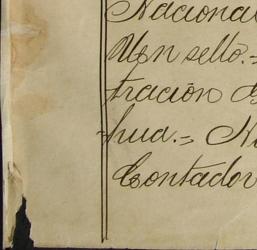 Nacional
Un sello.=
tración
hua.=
Contador